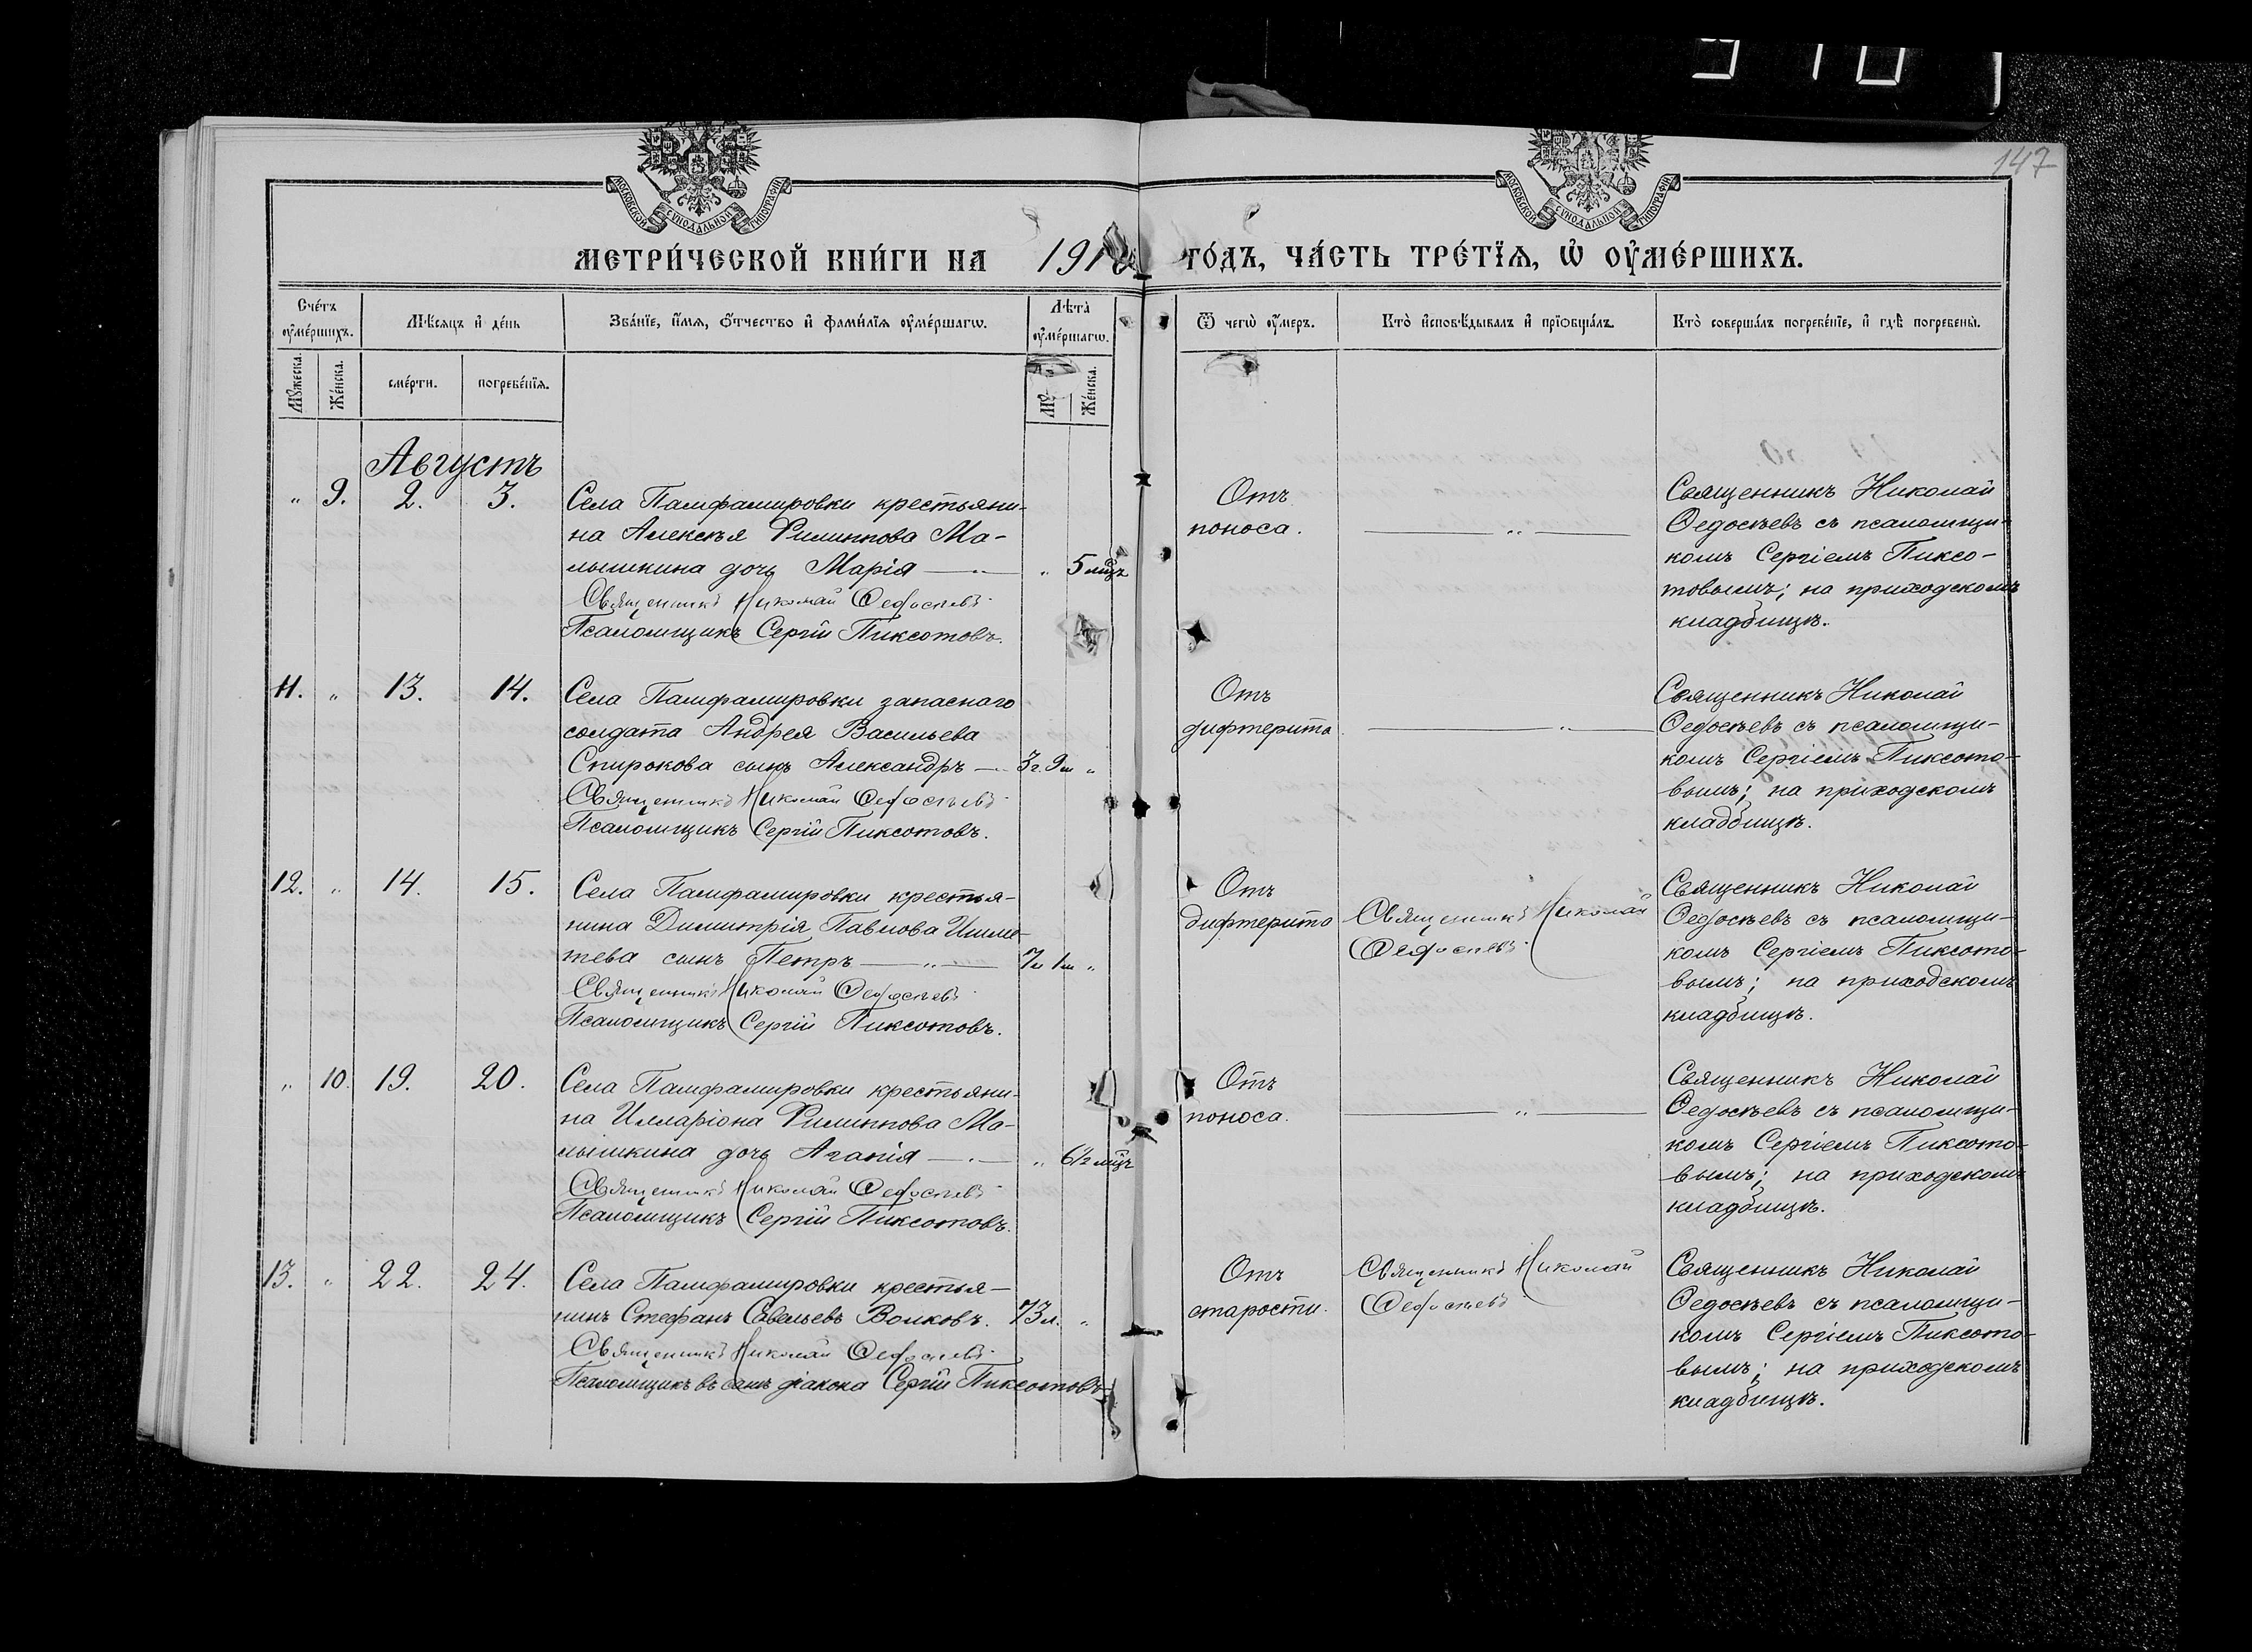 147
МОСКОВСКОЙ СѴНОДАЛЬНОЙ ТИПОГРАФІИ
МОСКОВСКОЙ СѴНОДАЛЬНОЙ ТИПОГРАФІИ
МЕТРИ́ЧЕСКОЙ КНИ́ГИ НА 191
ГО́ДЪ, ЧА́СТЬ ТРЕ́ТЇѦ, Ѡ҆ ОУ҆МЕ́РШИХЪ.
Сче́тъ оу҆ме́ршихъ.
Мѣ́сяцъ и҆ де́нь
Зва́нїе, и҆́мѧ, ѻ҆́тчество и҆ фами́лїѧ оу҆ме́ршагѡ.
Лѣ́та оу҆ме́ршагѡ.
Ѿ чегѡ̀ оу҆́меръ.
Кто̀ и҆сповѣ́дывалъ и҆ прїѡбща́лъ.
Кто̀ соверша́лъ погребе́нїе, и҆ гдѣ̀ погребены̀.
Мꙋ́жеска.
Же́нска.
сме́рти.
погребе́нїѧ.
Же́нска.
Августъ
" 9. 2. 3.
Села Памфамировки крестьяни-
на Алексѣя Филиппова Ма-
лышкина дочь Марія — " 5 мц̃ъ
Священникъ Николай Ѳедосѣевъ
Псаломщикъ Сергій Пиксотовъ.
Отъ
поноса.
— " —
Священникъ Николай
Ѳедосѣевъ съ псаломщи-
комъ Сергіемъ Пиксо-
товымъ; на приходскомъ
кладбищѣ.
11. " 13. 14.
Села Памфамировки запаснаго
солдата Андрея Васильева
Спирокова сынъ Александръ — 3 г. 9 м "
Священникъ Николай Ѳедосѣевъ
Псаломщикъ Сергій Пиксотовъ.
Отъ
дифтерита
— " —
Священникъ Николай
Ѳедосѣевъ съ псаломщи-
комъ Сергіемъ Пиксото-
вымъ; на приходскомъ
кладбищѣ.
12. " 14. 15.
Села Памфамировки крестья-
нина Димитрія Павлова
тева сынъ Петръ — " — 7 л 1 м "
Священникъ Николай Ѳедосѣевъ
Псаломщикъ Сергій Пиксотовъ.
Отъ
дифтерита
Священникъ Николай
Ѳедосѣевъ
Священникъ Николай
Ѳедосѣевъ съ псаломщи-
комъ Сергіемъ Пиксото-
вымъ; на приходскомъ
кладбищѣ.
" 10. 19. 20.
Села Памфамировки крестьяни-
на Илларіона Филиппова Ма-
лышкина дочь Агапія — " 6½ мц̃ъ
Священникъ Николай Ѳедосѣевъ
Псаломщикъ Сергій Пиксотовъ.
Отъ
поноса.
— " —
Священникъ Николай
Ѳедосѣевъ съ псаломщи-
комъ Сергіемъ Пиксото-
вымъ; на приходскомъ
кладбищѣ.
13. " 22. 24.
Села Памфамировки крестья-
нинъ Стефанъ Савельевъ Волковъ. 73 л. "
Священникъ Николай Ѳедосѣевъ
Псаломщикъ въ санѣ діакона Сергій Пиксотовъ
Отъ
старости.
Священникъ Николай
Ѳедосѣевъ
Священникъ Николай
Ѳедосѣевъ съ псаломщи-
комъ Сергіемъ Пиксото-
вымъ; на приходскомъ
кладбищѣ.